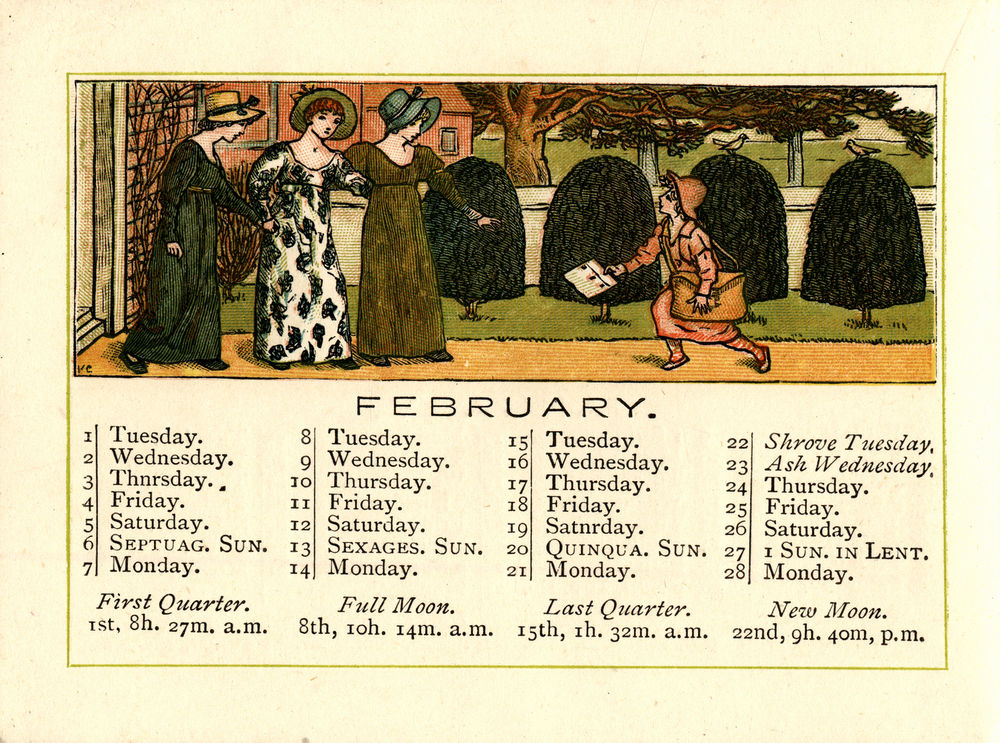 KG
FEBRUARY.
1 Tuesday.
2 Wednesday.
3 Thnrsday.
4 Friday.
5 Saturday.
6 SEPTUAG. SUN.
7 Monday.
8 Tuesday.
9 Wednesday.
10 Thursday.
11 Friday.
12 Saturday.
13 SEXAGES. SUN.
14 Monday.
15 Tuesday.
16 Wednesday.
17 Thursday.
18 Friday.
19 Satnrday.
20 QUINQUA. SUN.
21 Monday.
22 Shrove Tuesday.
23 Ash Wednesday.
24 Thursday.
25 Friday.
26 Saturday.
27 1 SUN. IN LENT.
28 Monday.
First Quarter.
1st, 8h. 27m. a.m.
Full Moon.
8th, 10h. 14m. a.m.
Last Quarter.
15th, 1h. 32m. a.m.
New Moon.
22nd, 9h. 40m, p.m.